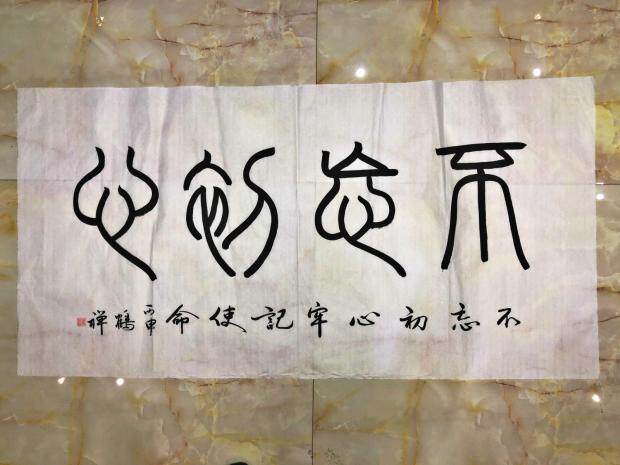 不忘初心
不忘初心牢記使命
丙申
鶴禅